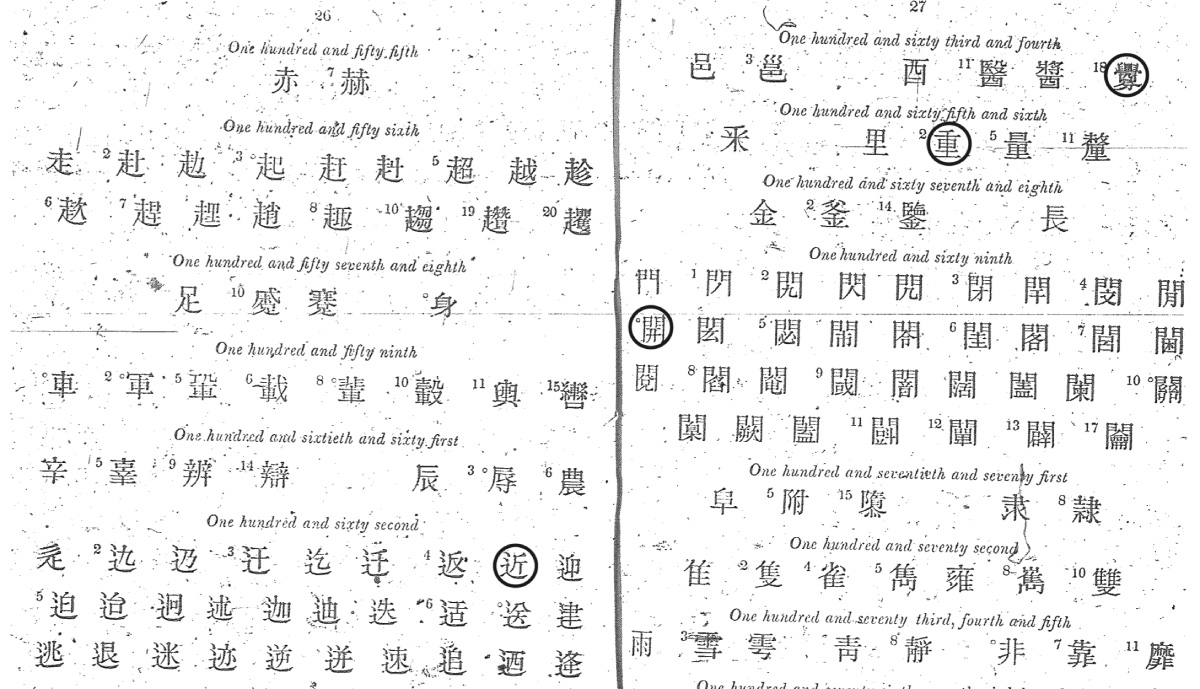 26
One hundred and fifty fifth
赤 7 赫
One hundred and fifty sixth
走 2 赴 赲 3 起 赶 赳 5 超 越 趁
6 7 趕 趙 8 趣 10 趨 19 趲 20
One hundred and fifty seventh and eighth
足 10 蹙 蹇 身
One hundred and fifty ninth
車 2 軍 5 6 載 8 輩 10 轂 11 輿 15 轡
One hundred and sixtieth and sixty first
辛 5 辜 9 辨 14 辯 辰 3 辱 6 農
One hundred and sixty second
辵 2 3 迂 迄 迁 4 返 近 迎
5 迫 迨 迥 迦 迪 迭 6 适 送 建
逃 退 迷 迹 逆 迸 速 追 迺 逢
27
One hundred and sixty third and fourth
邑 3 邕 酉 11 醫 醬 18 釁
One hundred and sixty fifth and sixth
釆 里 2 重 5 量 11 釐
One hundred and sixty seventh and eighth
金 2 釜 14 鑒 長
One hundred and sixty ninth
門 1 閂 2 閃 3 閉 閈 4 閔 閒
開 閎 5 閟 鬧 6 閨 閣 7 閭
閱 8 閻 閹 9 闇 闊 闔 闌 10 關
闃 闕 闔 11 12 闡 13 闢 17 闥
One hundred and seventieth and seventy first
阜 5 附 15 隳 隶 8 隸
One hundred and seventy second
隹 2 隻 4 雀 5 雋 雍 8 10 雙
One hundred and seventy third, fourth and fifth
雨 3 雪 雩 靑 8 靜 非 7 靠 11 靡